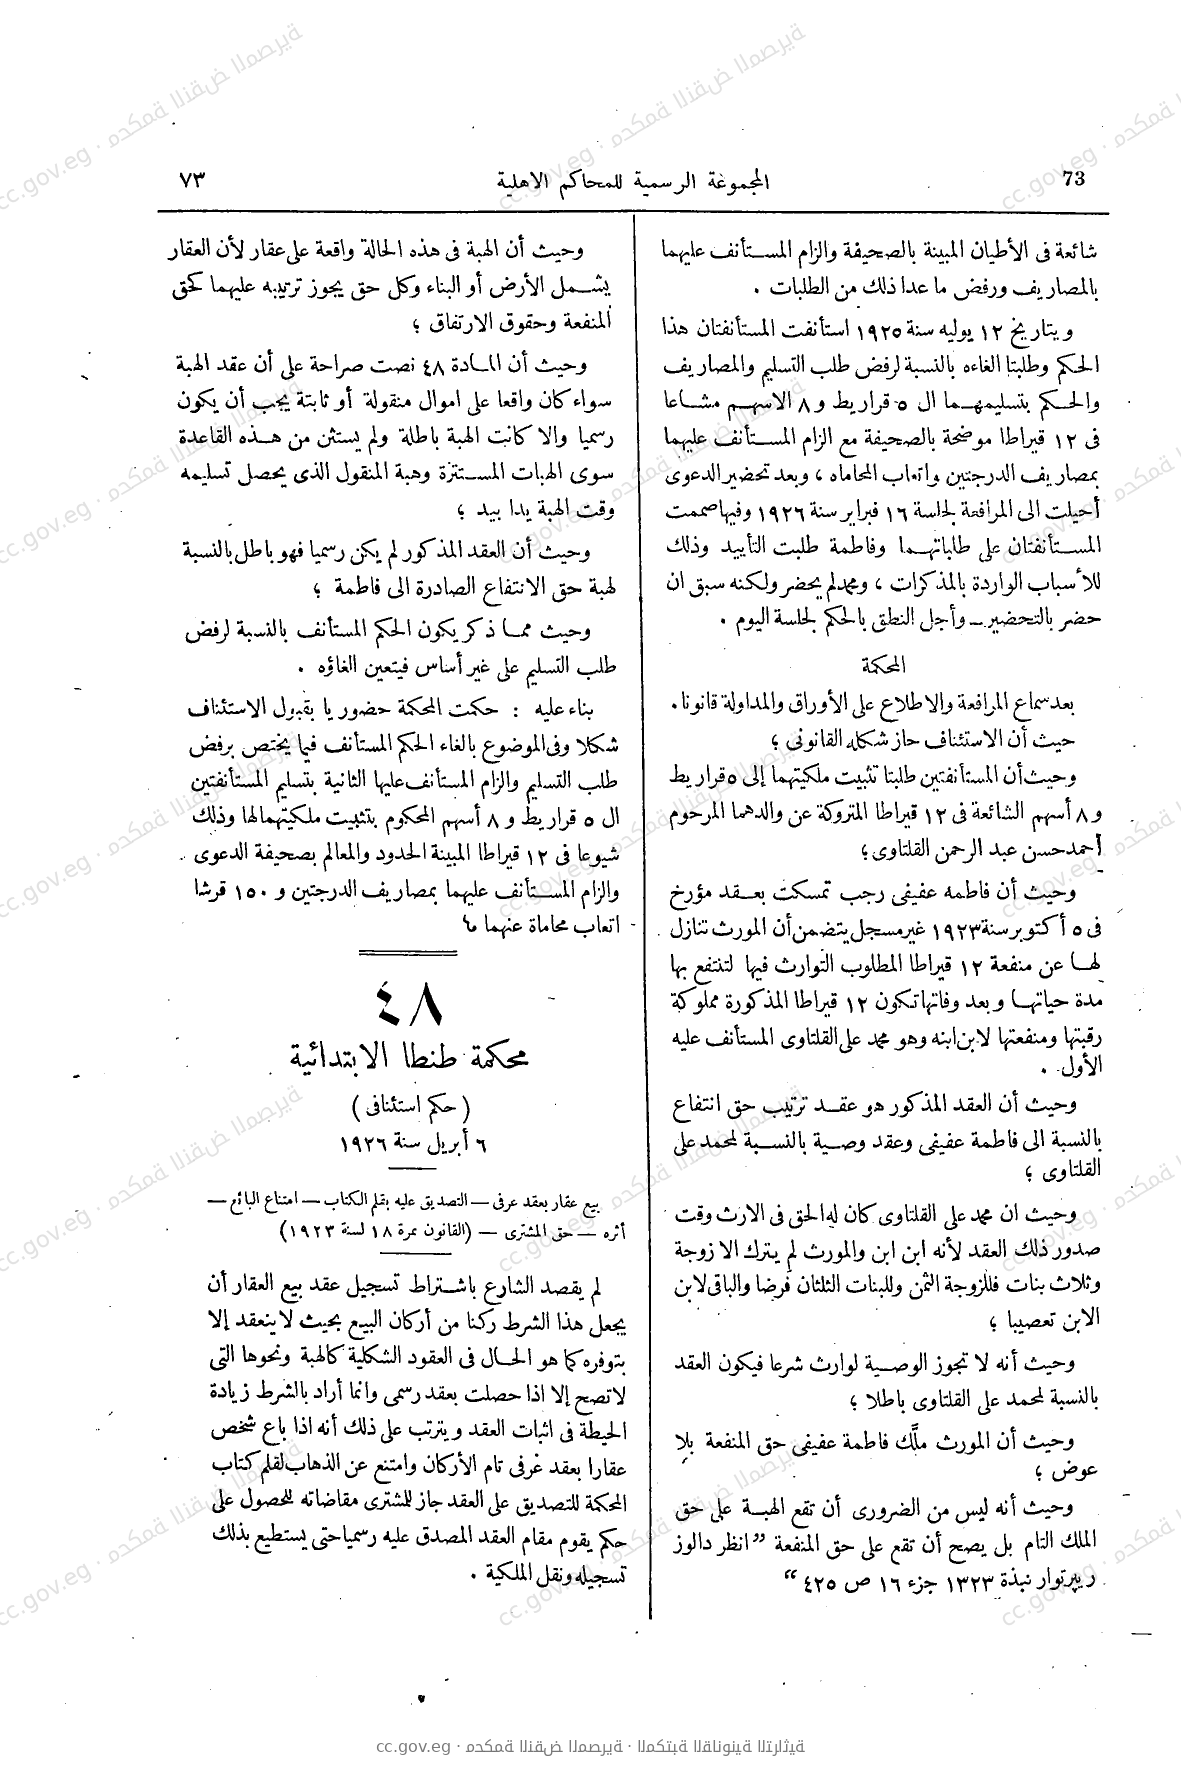 73
المجموعة الرسمية للمحاكم الاهلية
٧٣
شائعة فى الأطيان المبينة بالصحيفة والزام المستأنف عليهما
بالمصاريف ورفض ما عدا ذلك من الطلبات .
وبتاريخ ١٢ يوليه سنة ١٩٢٥ استأنفت المستأنفتان هذا
الحكم وطلبتا الغاءه بالنسبة لرفض طلب التسليم والمصاريف
والحكم بتسليمهما ال ٥ قراريط و ٨ الاسهم مشاعا
فى ١٢ قيراطا موضحة بالصحيفة مع الزام المستأنف عليهما
بمصاريف الدرجتين واتعاب المحاماه ، وبعد تحضير الدعوى
أحيلت الى المرافعة لجلسة ١٦ فبراير سنة ١٩٢٦ وفيها صممت
المستأنفتان على طلباتهما وفاطمة طلبت التأييد وذلك
للأسباب الواردة بالمذكرات ، ومحمد لم يحضر ولكنه سبق ان
حضر بالتحضير ــ وأجل النطق بالحكم لجلسة اليوم .
المحكمة
بعد سماع المرافعة والاطلاع على الأوراق والمداولة قانونا .
حيث أن الاستئناف حاز شكله القانونى ؛
وحيث أن المستأنفتين طلبتا تثبيت ملكيتهما إلى ٥ قراريط
و ٨ أسهم الشائعة فى ١٢ قيراطا المتروكة عن والدهما المرحوم
أحمد حسن عبد الرحمن القلتاوى ؛
وحيث أن فاطمه عفيفى رجب تمسكت بعقد مؤرخ
فى ٥ أكتوبر سنة ١٩٢٣ غير مسجل يتضمن أن المورث تنازل
لها عن منفعة ١٢ قيراطا المطلوب التوارث فيها لتنتفع بها
مدة حياتها وبعد وفاتها تكون ١٢ قيراطا المذكورة مملوكة
رقبتها ومنفعتها لابن ابنه وهو محمد على القلتاوى المستأنف عليه
الأول .
وحيث أن العقد المذكور هو عقد ترتيب حق انتفاع
بالنسبة الى فاطمة عفيفى وعقد وصية بالنسبة لمحمد على
القلتاوى ؛
وحيث ان محمد على القلتاوى كان له الحق فى الارث وقت
صدور ذلك العقد لأنه ابن ابن والمورث لم يترك الا زوجة
وثلاث بنات فللزوجة الثمن وللبنات الثلثان فرضا والباقى لابن
الابن تعصيبا ؛
وحيث أنه لا تجوز الوصية لوارث شرعا فيكون العقد
بالنسبة لمحمد على القلتاوى باطلا ؛
وحيث أن المورث ملّك فاطمة عفيفى حق المنفعة بلا
عوض ؛
وحيث أنه ليس من الضرورى أن تقع الهبة على حق
الملك التام بل يصح أن تقع على حق المنفعة ”انظر دالوز
ريپرتوار نبذة ١٣٢٣ جزء ١٦ ص ٤٢٥“
وحيث أن الهبة فى هذه الحالة واقعة على عقار لأن العقار
يشمل الأرض أو البناء وكل حق يجوز ترتيبه عليهما كحق
المنفعة وحقوق الارتفاق ؛
وحيث أن المادة ٤٨ نصت صراحة على أن عقد الهبة
سواء كان واقعا على اموال منقولة أو ثابتة يجب أن يكون
رسميا والا كانت الهبة باطلة ولم يستثن من هذه القاعدة
سوى الهبات المستترة وهبة المنقول الذى يحصل تسليمه
وقت الهبة يدا بيد ؛
وحيث أن العقد المذكور لم يكن رسميا فهو باطل بالنسبة
لهبة حق الانتفاع الصادرة الى فاطمة ؛
وحيث مما ذكر يكون الحكم المستأنف بالنسبة لرفض
طلب التسليم على غير أساس فيتعين الغاؤه .
بناء عليه : حكمت المحكمة حضوريا بقبول الاستئناف
شكلا وفى الموضوع بالغاء الحكم المستأنف فيما يختص برفض
طلب التسليم والزام المستأنف عليها الثانية بتسليم المستأنفتين
ال ٥ قراريط و ٨ أسهم المحكوم بتثبيت ملكيتهما لها وذلك
شيوعا فى ١٢ قيراطا المبينة الحدود والمعالم بصحيفة الدعوى
والزام المستأنف عليهما بمصاريف الدرجتين و ١٥٠ قرشا
اتعاب محاماة عنهما
٤٨
محكمة طنطا الابتدائية
( حكم استئنافى )
٦ أبريل سنة ١٩٢٦
بيع عقار بعقد عرفى — التصديق عليه بقلم الكتاب — امتناع البائع —
أثره — حق المشترى — (القانون نمرة ١٨ لسنة ١٩٢٣)
لم يقصد الشارع باشتراط تسجيل عقد بيع العقار أن
يجعل هذا الشرط ركنا من أركان البيع بحيث لا ينعقد إلا
بتوفره كما هو الحال فى العقود الشكلية كالهبة ونحوها التى
لا تصح إلا اذا حصلت بعقد رسمى وانما أراد بالشرط زيادة
الحيطة فى اثبات العقد ويترتب على ذلك أنه اذا باع شخص
عقارا بعقد عرفى تام الأركان وامتنع عن الذهاب لقلم كتاب
المحكمة للتصديق على العقد جاز للمشترى مقاضاته للحصول على
حكم يقوم مقام العقد المصدق عليه رسميا حتى يستطيع بذلك
تسجيله ونقل الملكية .
cc.gov.eg · محكمة النقض المصرية · المكتبة القانونية التراثية